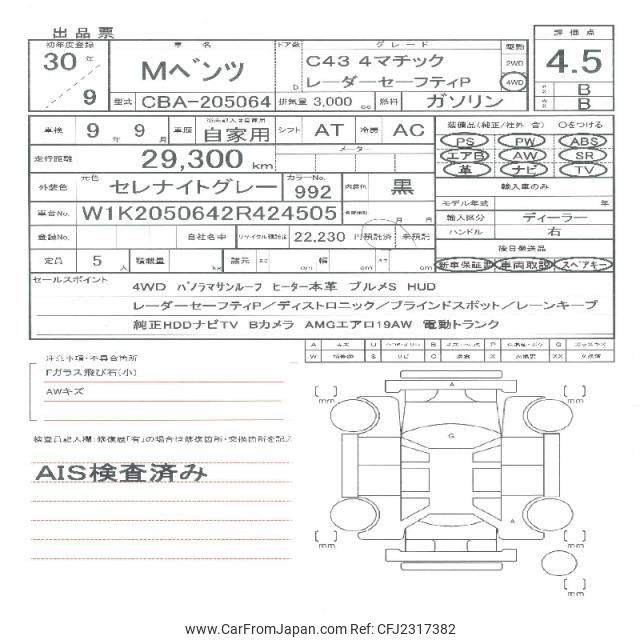 出品票
初年度登録 車名 ドア数 グレード 駆動 評価点
30年 9
Mベンツ
D
C43 4マチック
レーダーセーフティP
2WD
4WD
4.5
B
B
型式 CBA-205064 排気量 3,000 cc 燃料 ガソリン
車検 9年 9月 車歴 自家用 シフト AT 冷房 AC
装備品(純正/社外 含) ○をつける
PS PW ABS
エアB AW SR
革 ナビ TV
走行距離 29,300 km メーター
外装色 元色 セレナイトグレー カラーNo. 992 内装色 黒
輸入車のみ
モデル年式 年
車台No. W1K2050642R424505 月 日
輸入区分 ディーラー
ハンドル 右
登録No. 自社名中 リサイクル預託金 22,230 円預託済 未預託
後日発送品
定員 5人 積載量 kg 諸元 cm 幅 cm cm
新車保証書 車両取説 スペアキー
セールスポイント
4WD パノラマサンルーフ ヒーター本革 ブルメS HUD
レーダーセーフティP/ディストロニック/ブラインドスポット/レーンキープ
純正HDDナビTV Bカメラ AMGエアロ19AW 電動トランク
A キズ U B P G ガラスキズ
W S サビ C 腐食 X XX
注意事項・不具合箇所
Fガラス飛び石(小)
AWキズ
検査員記入欄:修復歴「有」の場合は修復箇所・交換箇所を記入
AIS検査済み
A
G
A
mm
mm
mm
mm
mm
www.CarFromJapan.com Ref: CFJ2317382